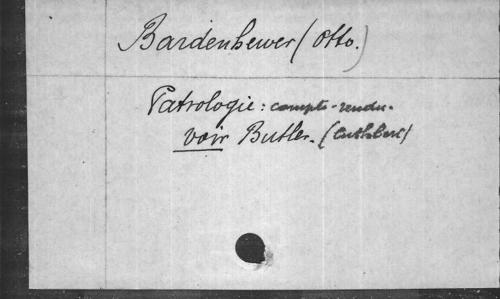 Bardenhewer (Otto.)
Patrologie: compte-rendu.
voir Butler. (Cuthbert)